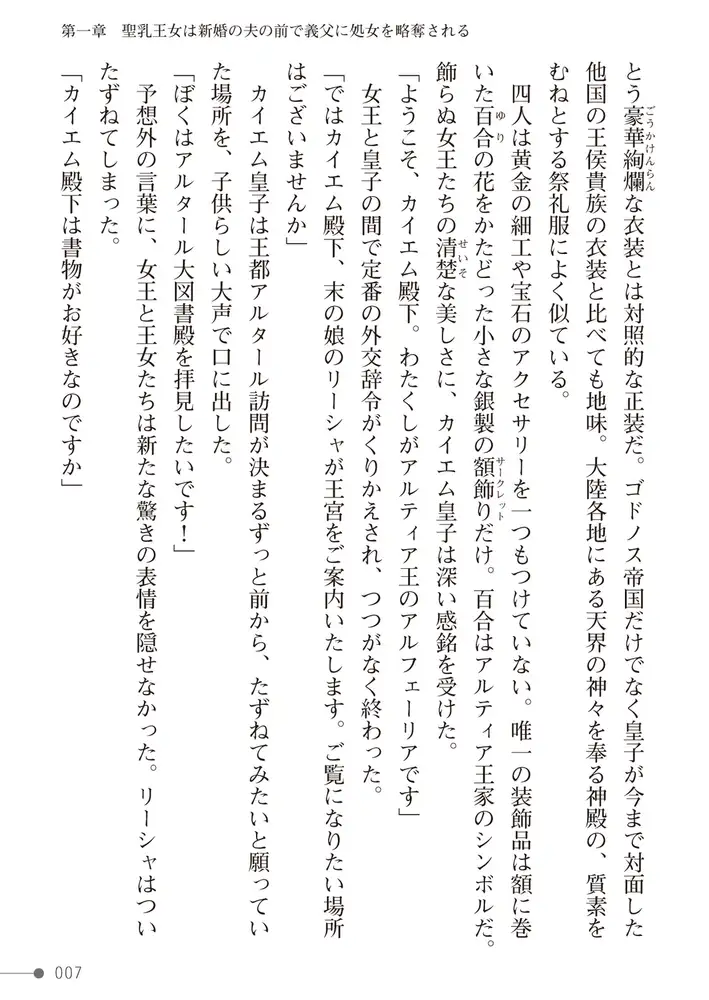 第一章　聖乳王女は新婚の夫の前で義父に処女を略奪される
とう豪華絢爛な衣装とは対照的な正装だ。ゴドノス帝国だけでなく皇子が今まで対面した
他国の王侯貴族の衣装と比べても地味。大陸各地にある天界の神々を奉る神殿の、質素を
むねとする祭礼服によく似ている。
　四人は黄金の細工や宝石のアクセサリーを一つもつけていない。唯一の装飾品は額に巻
いた百合の花をかたどった小さな銀製の額飾りだけ。百合はアルティア王家のシンボルだ。
飾らぬ女王たちの清楚な美しさに、カイエム皇子は深い感銘を受けた。
「ようこそ、カイエム殿下。わたくしがアルティア王のアルフェーリアです」
　女王と皇子の間で定番の外交辞令がくりかえされ、つつがなく終わった。
「ではカイエム殿下、末の娘のリーシャが王宮をご案内いたします。ご覧になりたい場所
はございませんか」
　カイエム皇子は王都アルタール訪問が決まるずっと前から、たずねてみたいと願ってい
た場所を、子供らしい大声で口に出した。
「ぼくはアルタール大図書殿を拝見したいです！」
　予想外の言葉に、女王と王女たちは新たな驚きの表情を隠せなかった。リーシャはつい
たずねてしまった。
「カイエム殿下は書物がお好きなのですか」
007